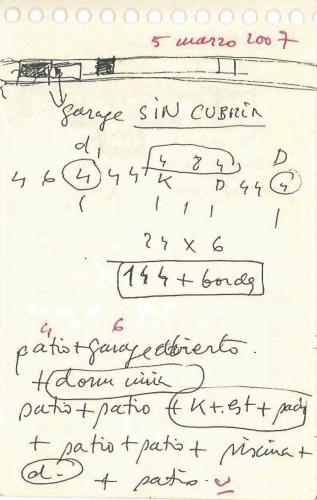 5 marzo 2007
garage SIN CUBRIR
d,
4 6 4 4 4 4 8 4 D
K D 44 4
1 1 1 1 1
24 x 6
144 + borde
4 6
patio + garage abierto.
+ dorm
patio + patio + K + est + patio
+ patio + patio + piscina +
d.
+ patio.